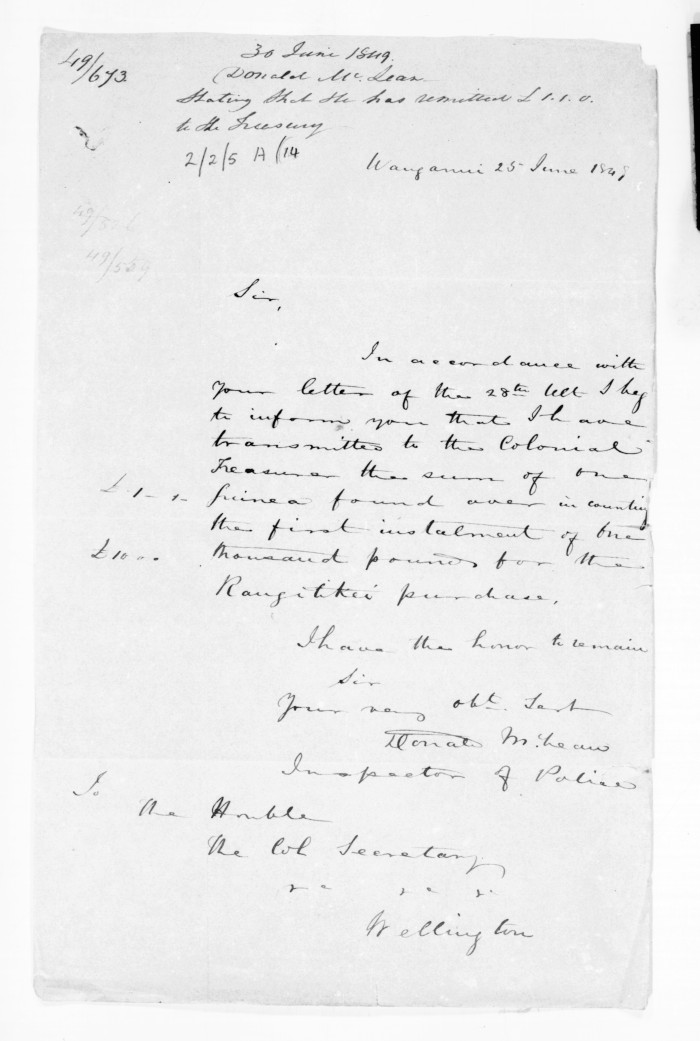 49/673
30 June 1849.
Donald McLean
Stating that He has remitted £1.1.0.
to the Treasury
2/2/5 A/14
Wanganui 25 June 1849
49/559
Sir,
In accordance with
your letter of the 28th Ult I beg
to inform you that I have
transmitted to the Colonial
Treasurer the sum of one
£.1-1- guinea found over in counting
the first instalment of One
£1000. thousand pounds for the
Rangitikei purchase.
I have the honor to remain
Sir
Your very obt. Sert
Donald McLean
Inspector of Police
To
The Honble
The Col Secretary
&c &c &c
Wellington